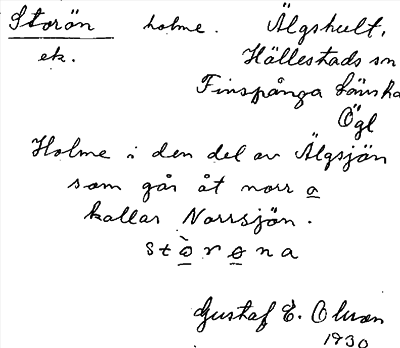 Storön holme. Älgshult,
ek. Hällestads sn
Finspånga Länsha
Ögl
Holme i den del av Älgsjön
som går åt norr a
kallar Norrsjön.
stòrøna
Gustaf E. Olsson
1930